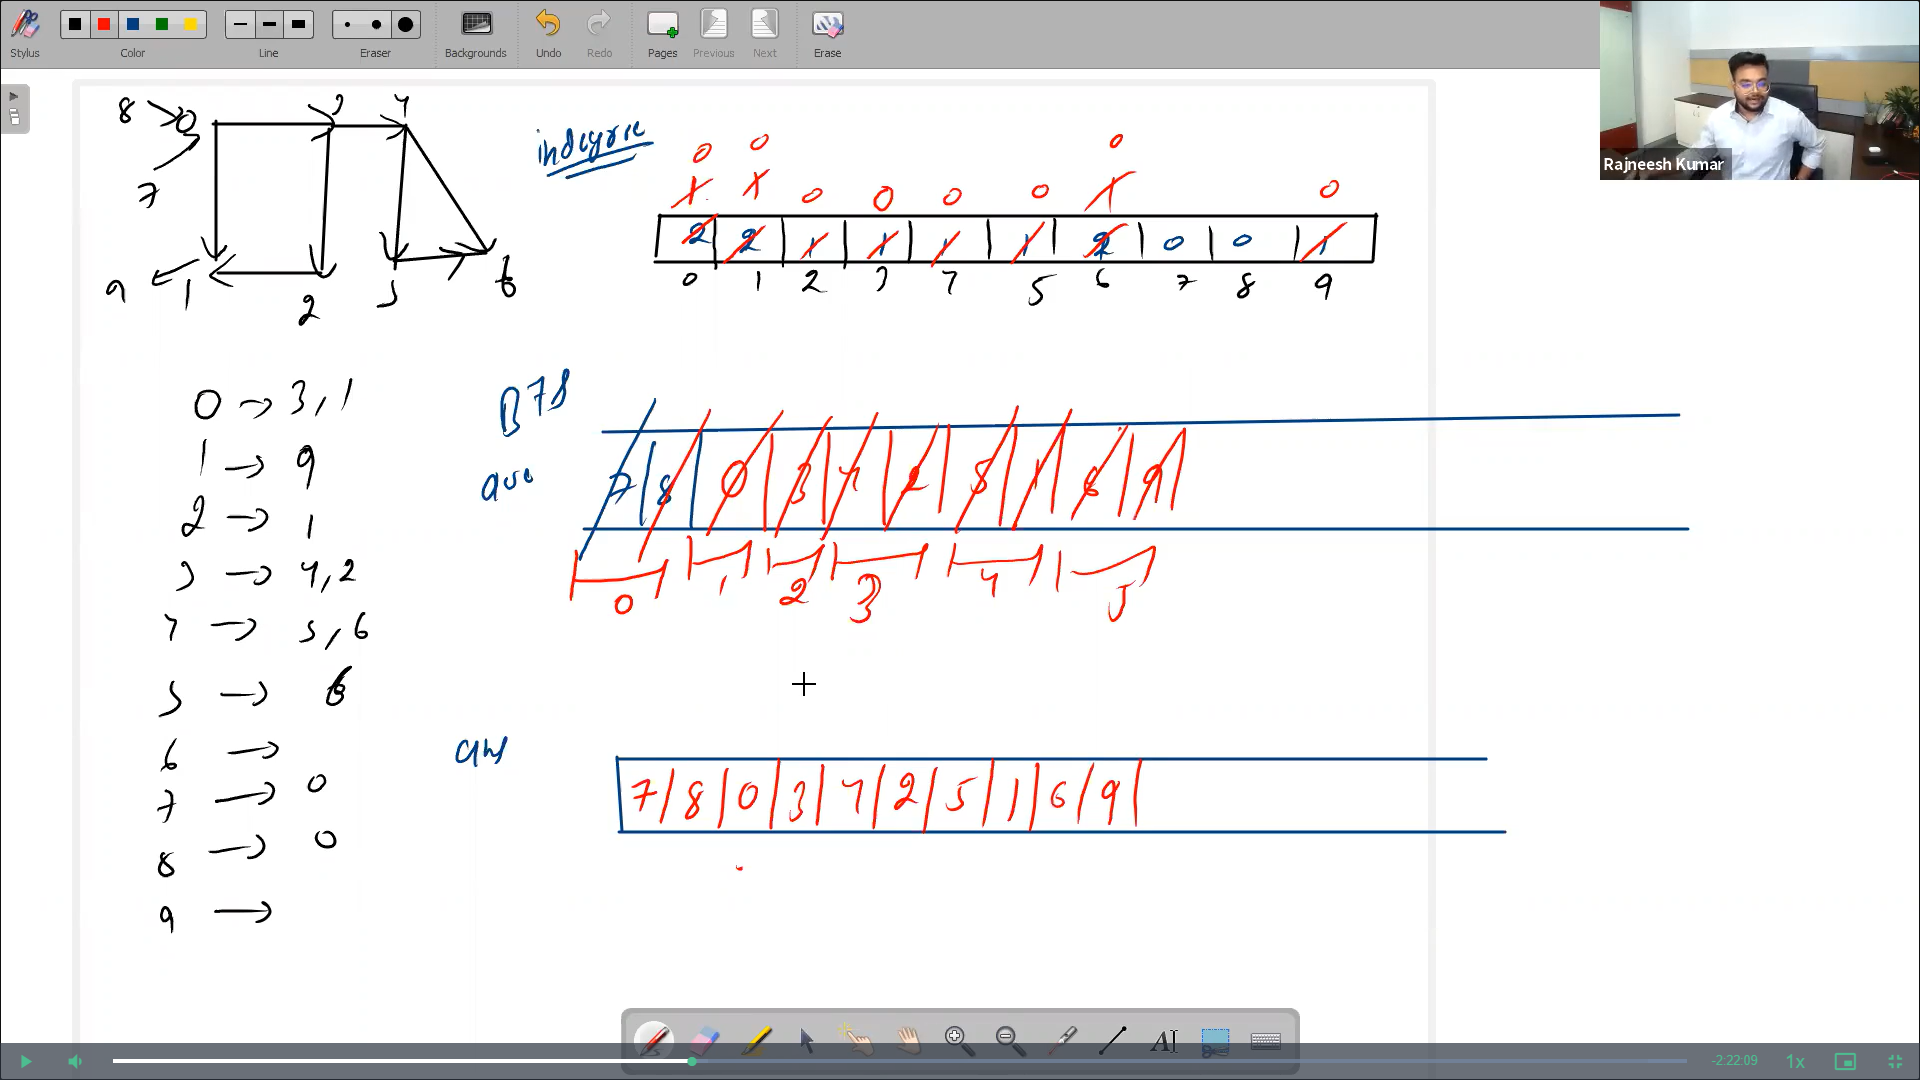 Stylus
Color
Line
Eraser
Backgrounds
Undo
Redo
Pages
Previous
Next
Erase
Rajneesh Kumar
8 0 3 4
7
9 1 2 5 6
indegree
0 0 0
1 1 0 0 0 0 1 0
2 2 1 1 1 1 2 0 0 1
0 1 2 3 4 5 6 7 8 9
0 → 3, 1
1 → 9
2 → 1
3 → 4, 2
4 → 5, 6
5 → 6
6 →
7 → 0
8 → 0
9 →
BFS
que
7 8 0 3 4 2 5 1 6 9
0 1 2 3 4 5
ans
7 8 0 3 4 2 5 1 6 9
-2:22:09
1x